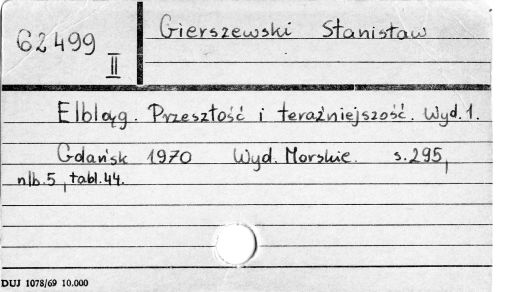 62499
II
Gierszewski Stanisław
Elbląg. Przeszłość i teraźniejszość. Wyd. 1.
Gdańsk 1970 Wyd. Morskie. s. 295,
nlb. 5, tabl. 44.
DUJ 1078/69 10.000